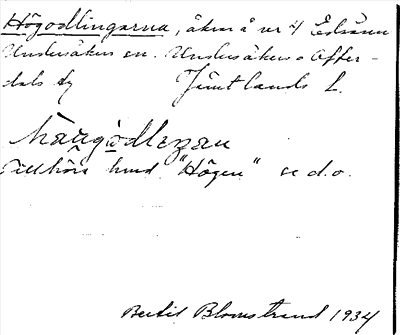 Högodlingarna, åkrar å nr 4 Edsåsen
Undersåkers sn. Undersåkers o Offer-
dals tg Jämtlands L.
hạ̈ugo̱dlezan
Tillhöra hmd. "Högen" se d.o.
Bertil Blomstrand 1934